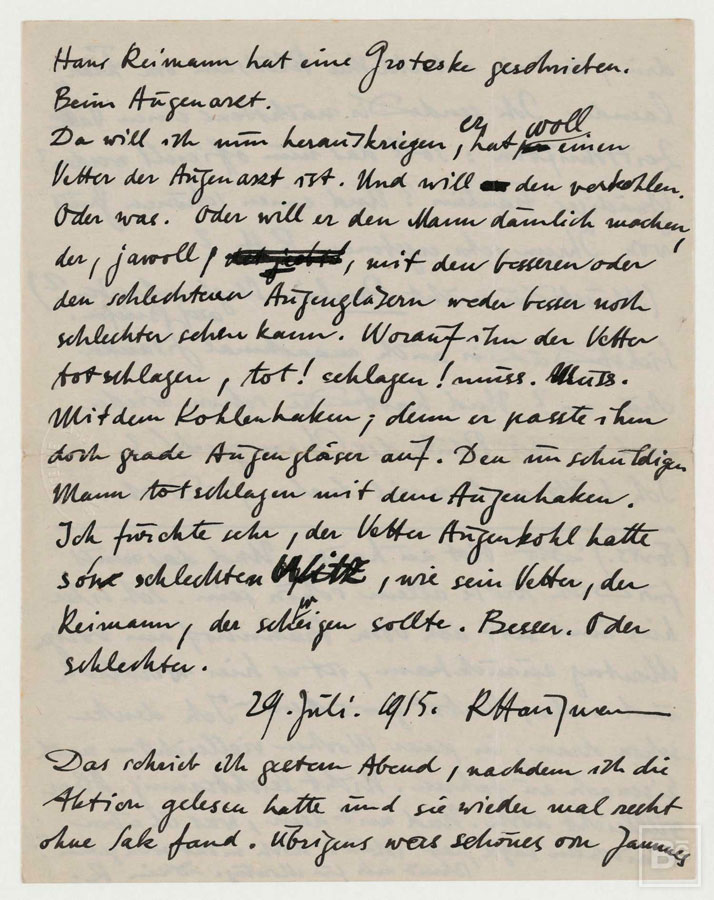 Hans Reimann hat eine Groteske geschrieben.
Beim Augenarzt.
Da will ich nun herauskriegen, er hat woll einen
Vetter der Augenarzt ist. Und will den verkohlen.
Oder was. Oder will er den Mann dämlich machen,
der, jawoll, mit den besseren oder
den schlechteren Augengläsern weder besser noch
schlechter sehen kann. Worauf ihn der Vetter
totschlagen, tot! schlagen! muss. Muss.
Mit dem Kohlenhaken; denn er passte ihm
doch grade Augengläser auf. Den unschuldigen
Mann totschlagen mit dem Augenhaken.
Ich fürchte sehr, der Vetter Augenkohl hatte
so'ne schlechten Witze, wie sein Vetter, der
Reimann, der schweigen sollte. Besser. Oder
schlechter.
29. Juli. 1915. RHausmann
Das schrieb ich gestern Abend, nachdem ich die
Aktion gelesen hatte und sie wieder mal recht
ohne Sak fand. Übrigens was schönes von Jammes